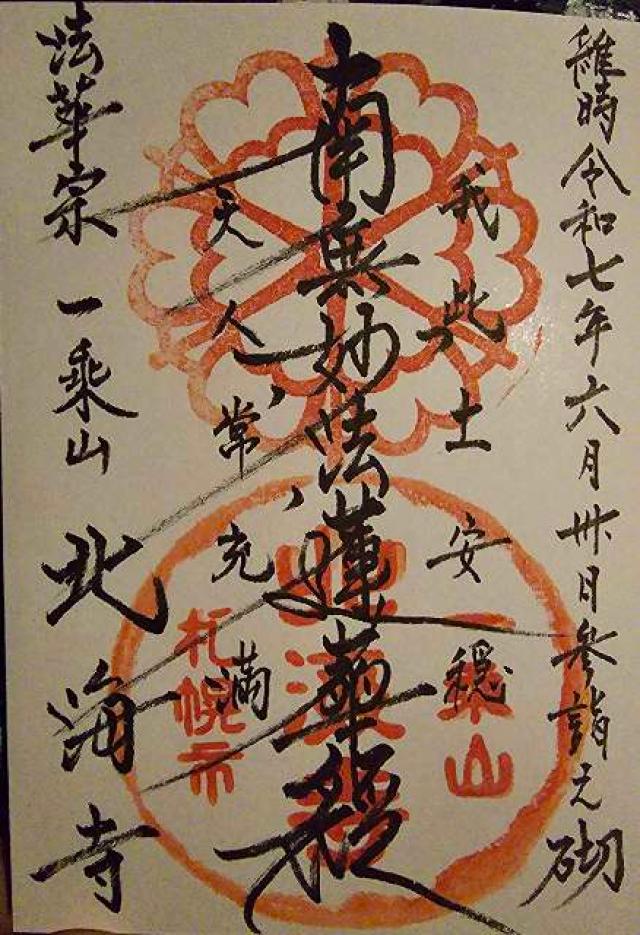 維時令和七年六月卅日参詣之砌
我此土安穏
南無妙法蓮華経
天人常充満
法華宗 一乗山 北海寺
一乗山
北海寺
札幌市